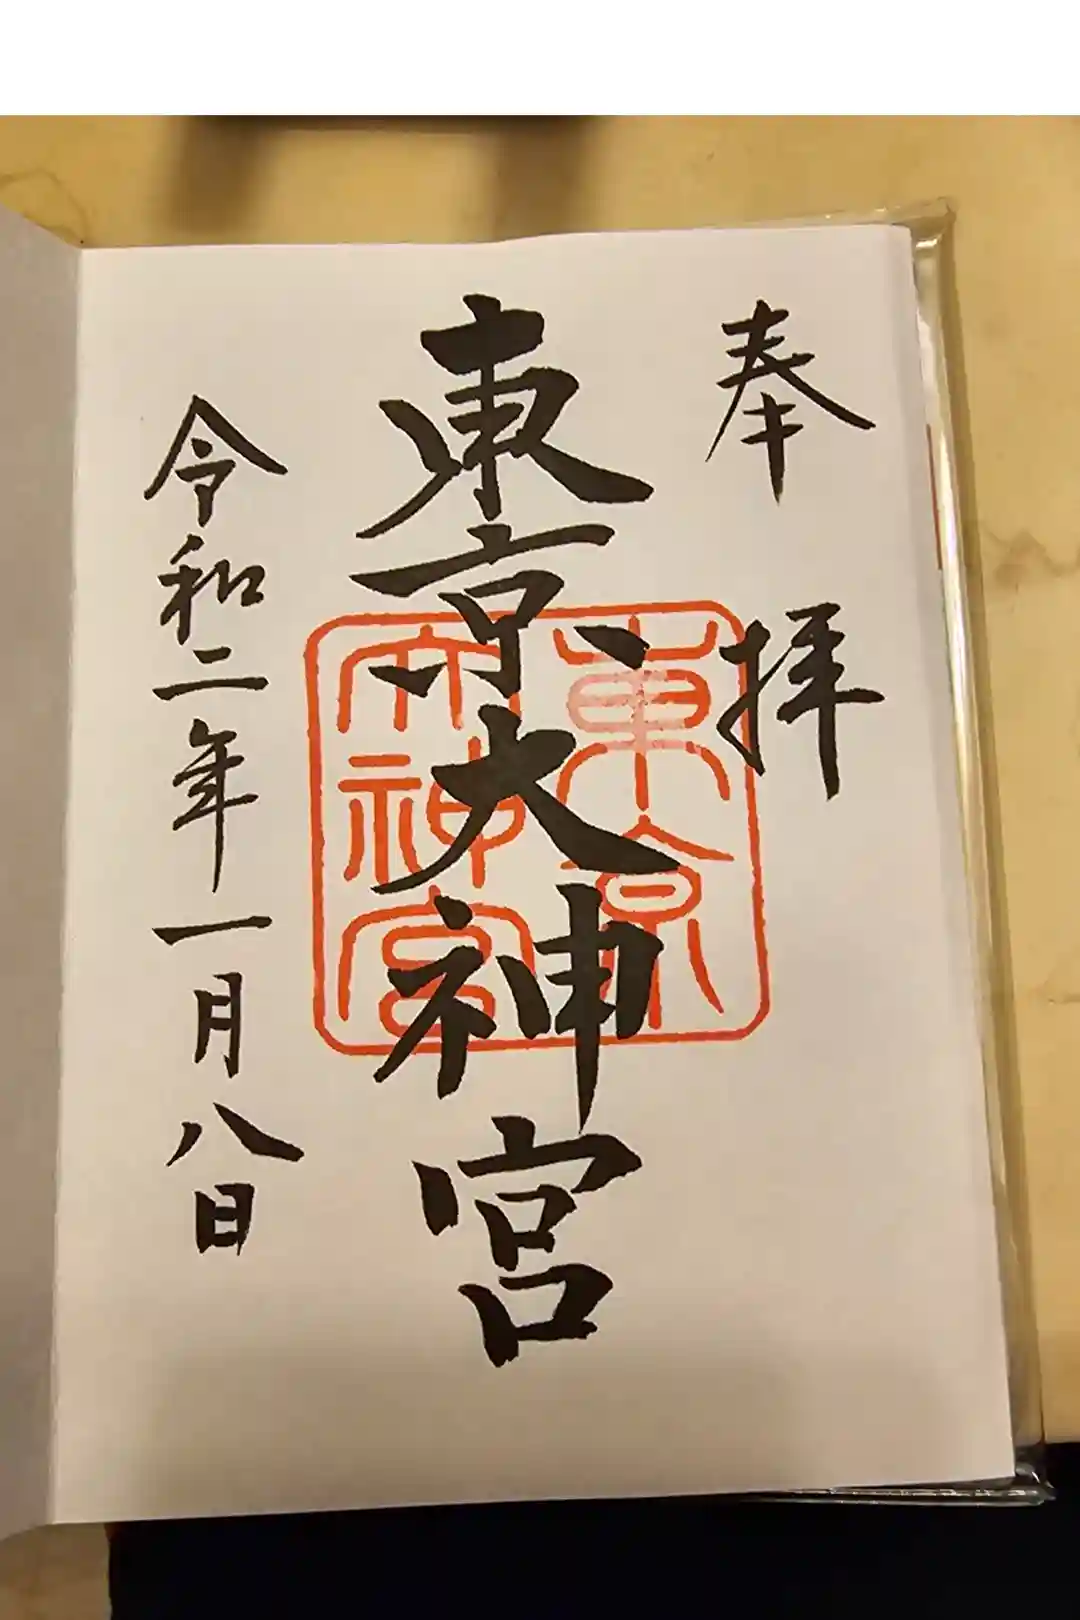 奉拝
東京大神宮
東京
大神宮
令和二年一月八日